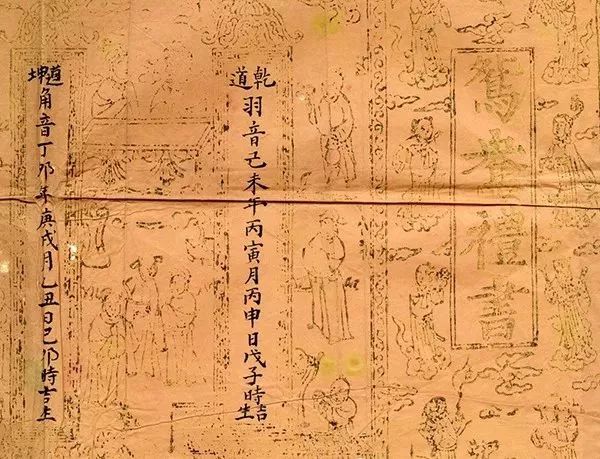 禮書
乾道羽音己未年丙寅月丙申日戊子時吉生
坤道角音丁卯年庚戌月乙丑日己卯時吉生